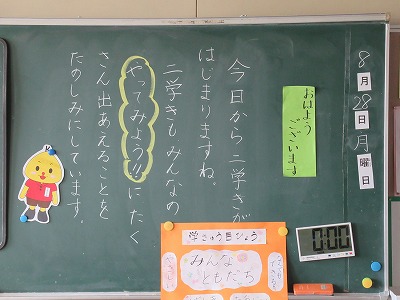 8月28日月曜日
おはよう
ございます
今日から二学きが
はじまりますね。
二学きもみんなの
やってみよう!!にたく
さん出あえることを
たのしみにしています。
学きゅう目ひょう
みんな
ともだち
0:00